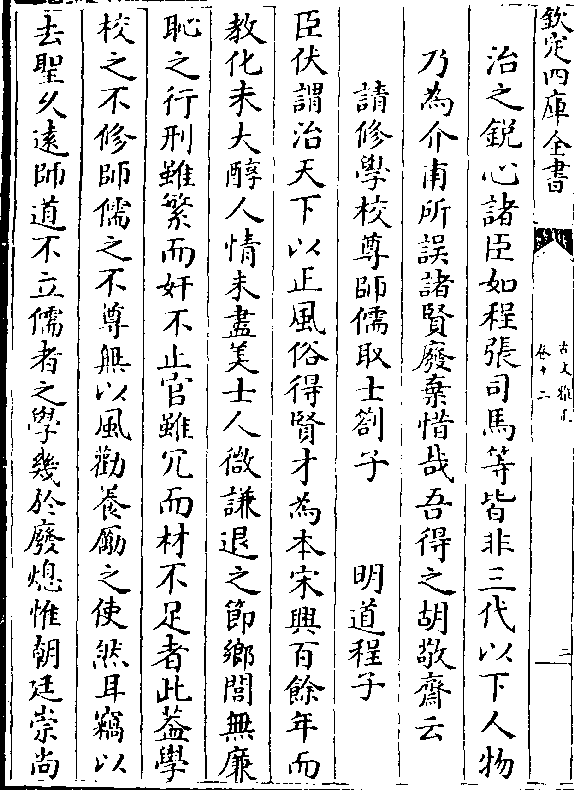 欽定四庫全書
古文雅正
卷十二
三
治之鋭心諸臣如程張司馬等皆非三代以下人物
乃為介甫所誤諸賢廢棄惜哉吾得之胡敬齋云
請修學校尊師儒取士劄子　明道程子
臣伏謂治天下以正風俗得賢才為本宋興百餘年而
教化未大醇人情未盡美士人微謙退之節鄉閭無廉
恥之行刑雖繁而奸不止官雖冗而材不足者此葢學
校之不修師儒之不尊無以風勸養勵之使然耳竊以
去聖久遠師道不立儒者之學幾於廢熄惟朝廷崇尚